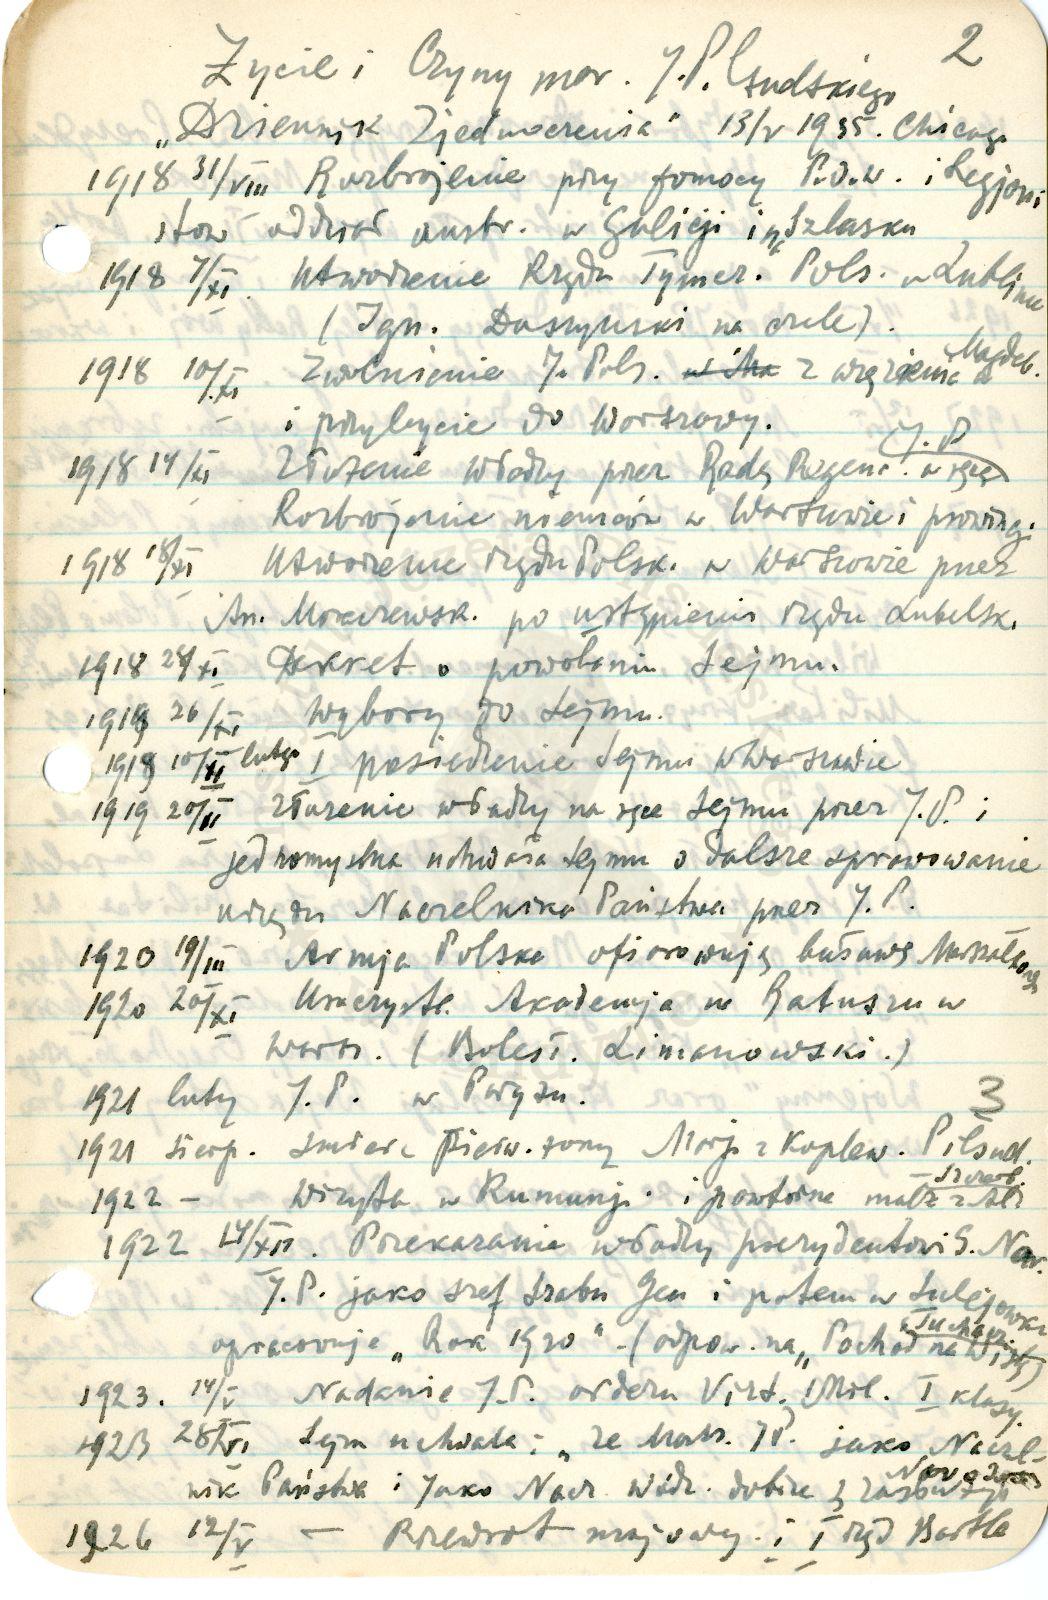 2
Życie i Czyny mar. J. Piłsudskiego
„Dziennik Zjednoczenia" 13/V 1935. Chicago
1918 31/VIII Rozbrojenie przy pomocy P.O.W. i Legjoni
stów oddział austr. w Galicji i na Szlasku
1918 7/XI. Utworzenie Rządu Tymcz. Pols. w Lublinie
(Ign. Daszyński na czele).
1918 10/XI Zwolnienie J. Piłs. z więzienia w Magdeb.
i przybycie do Warszawy.
1918 14/XI Złożenie władzy przez Radę Regenc. w ręce J. P
Rozbrojenie niemców w Warszawie i prowincj.
1918 18/XI Utworzenie rządu Polsk. w Warszawie przez
An. Moraczewsk. po ustąpieniu rządu Lubelsk.
1918 28/XI Dekret o powołaniu Sejmu.
1919 26/XI Wybory do Sejmu.
1919 10/II lutego I posiedzenie Sejmu w Warszawie
1919 20/II Złożenie władzy na ręce Sejmu przez J.P. i
jednomyślna uchwała Sejmu o dalsze sprawowanie
urzędu Naczelnika Państwa przez J. P.
1920 19/III Armja Polska ofiarowują buławę Marszałkowską
1920 20/XI Uroczyste. Akademja w Ratuszu w
Warsz. (Bolesł. Limanowski.)
1921 luty J. P. w Paryżu.
3
1921 sierp. śmierć pierw. żony Marji z Koplew. Piłsud.
1922 – Wizyta w Rumunji. i powtórne małż z Al. Szczerb.
1922 14/XII. Przekazanie władzy prezydentowi G. Nar.
J.P. jako szef sztabu Gen i potem w Sulejówku
opracowuje „Rok 1920" – (odpow. na „Pochód na Wisłę) Tuchacz.
1923. 14/V Nadanie J.P. orderu Virt. Mil. I klasy.
1923 28/VI Sejm uchwala: „że Marsz. J P. jako Naczel-
nik Państwa i Jako Nacz. Wódz. dobrze się zasłużył Narodowi
1926 12/V – Przewrót majowy. i I rząd Bartla